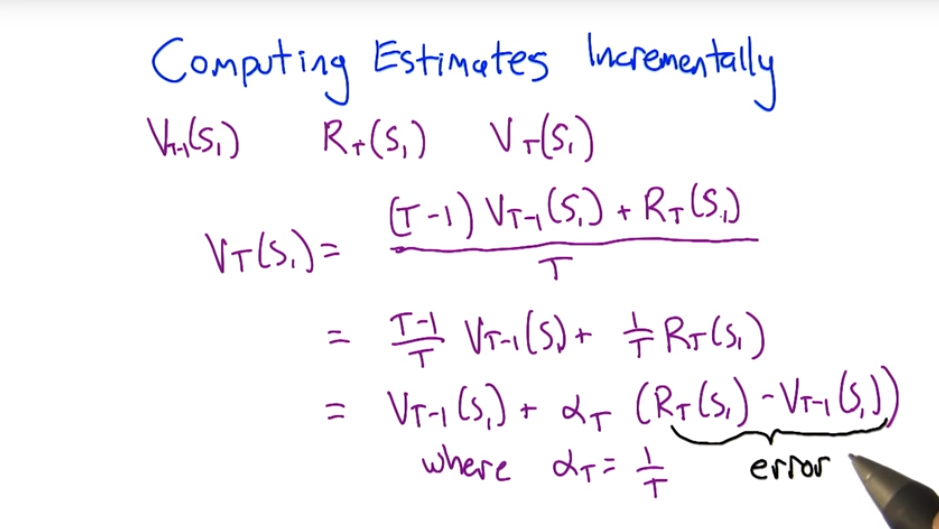 Computing Estimates Incrementally
V_{T-1}(S_1) R_T(S_1) V_T(S_1)
V_T(S_1) = \frac{(T-1) V_{T-1}(S_1) + R_T(S_1)}{T}
= \frac{T-1}{T} V_{T-1}(S_1) + \frac{1}{T} R_T(S_1)
= V_{T-1}(S_1) + α_T (R_T(S_1) - V_{T-1}(S_1))
where α_T = \frac{1}{T} error